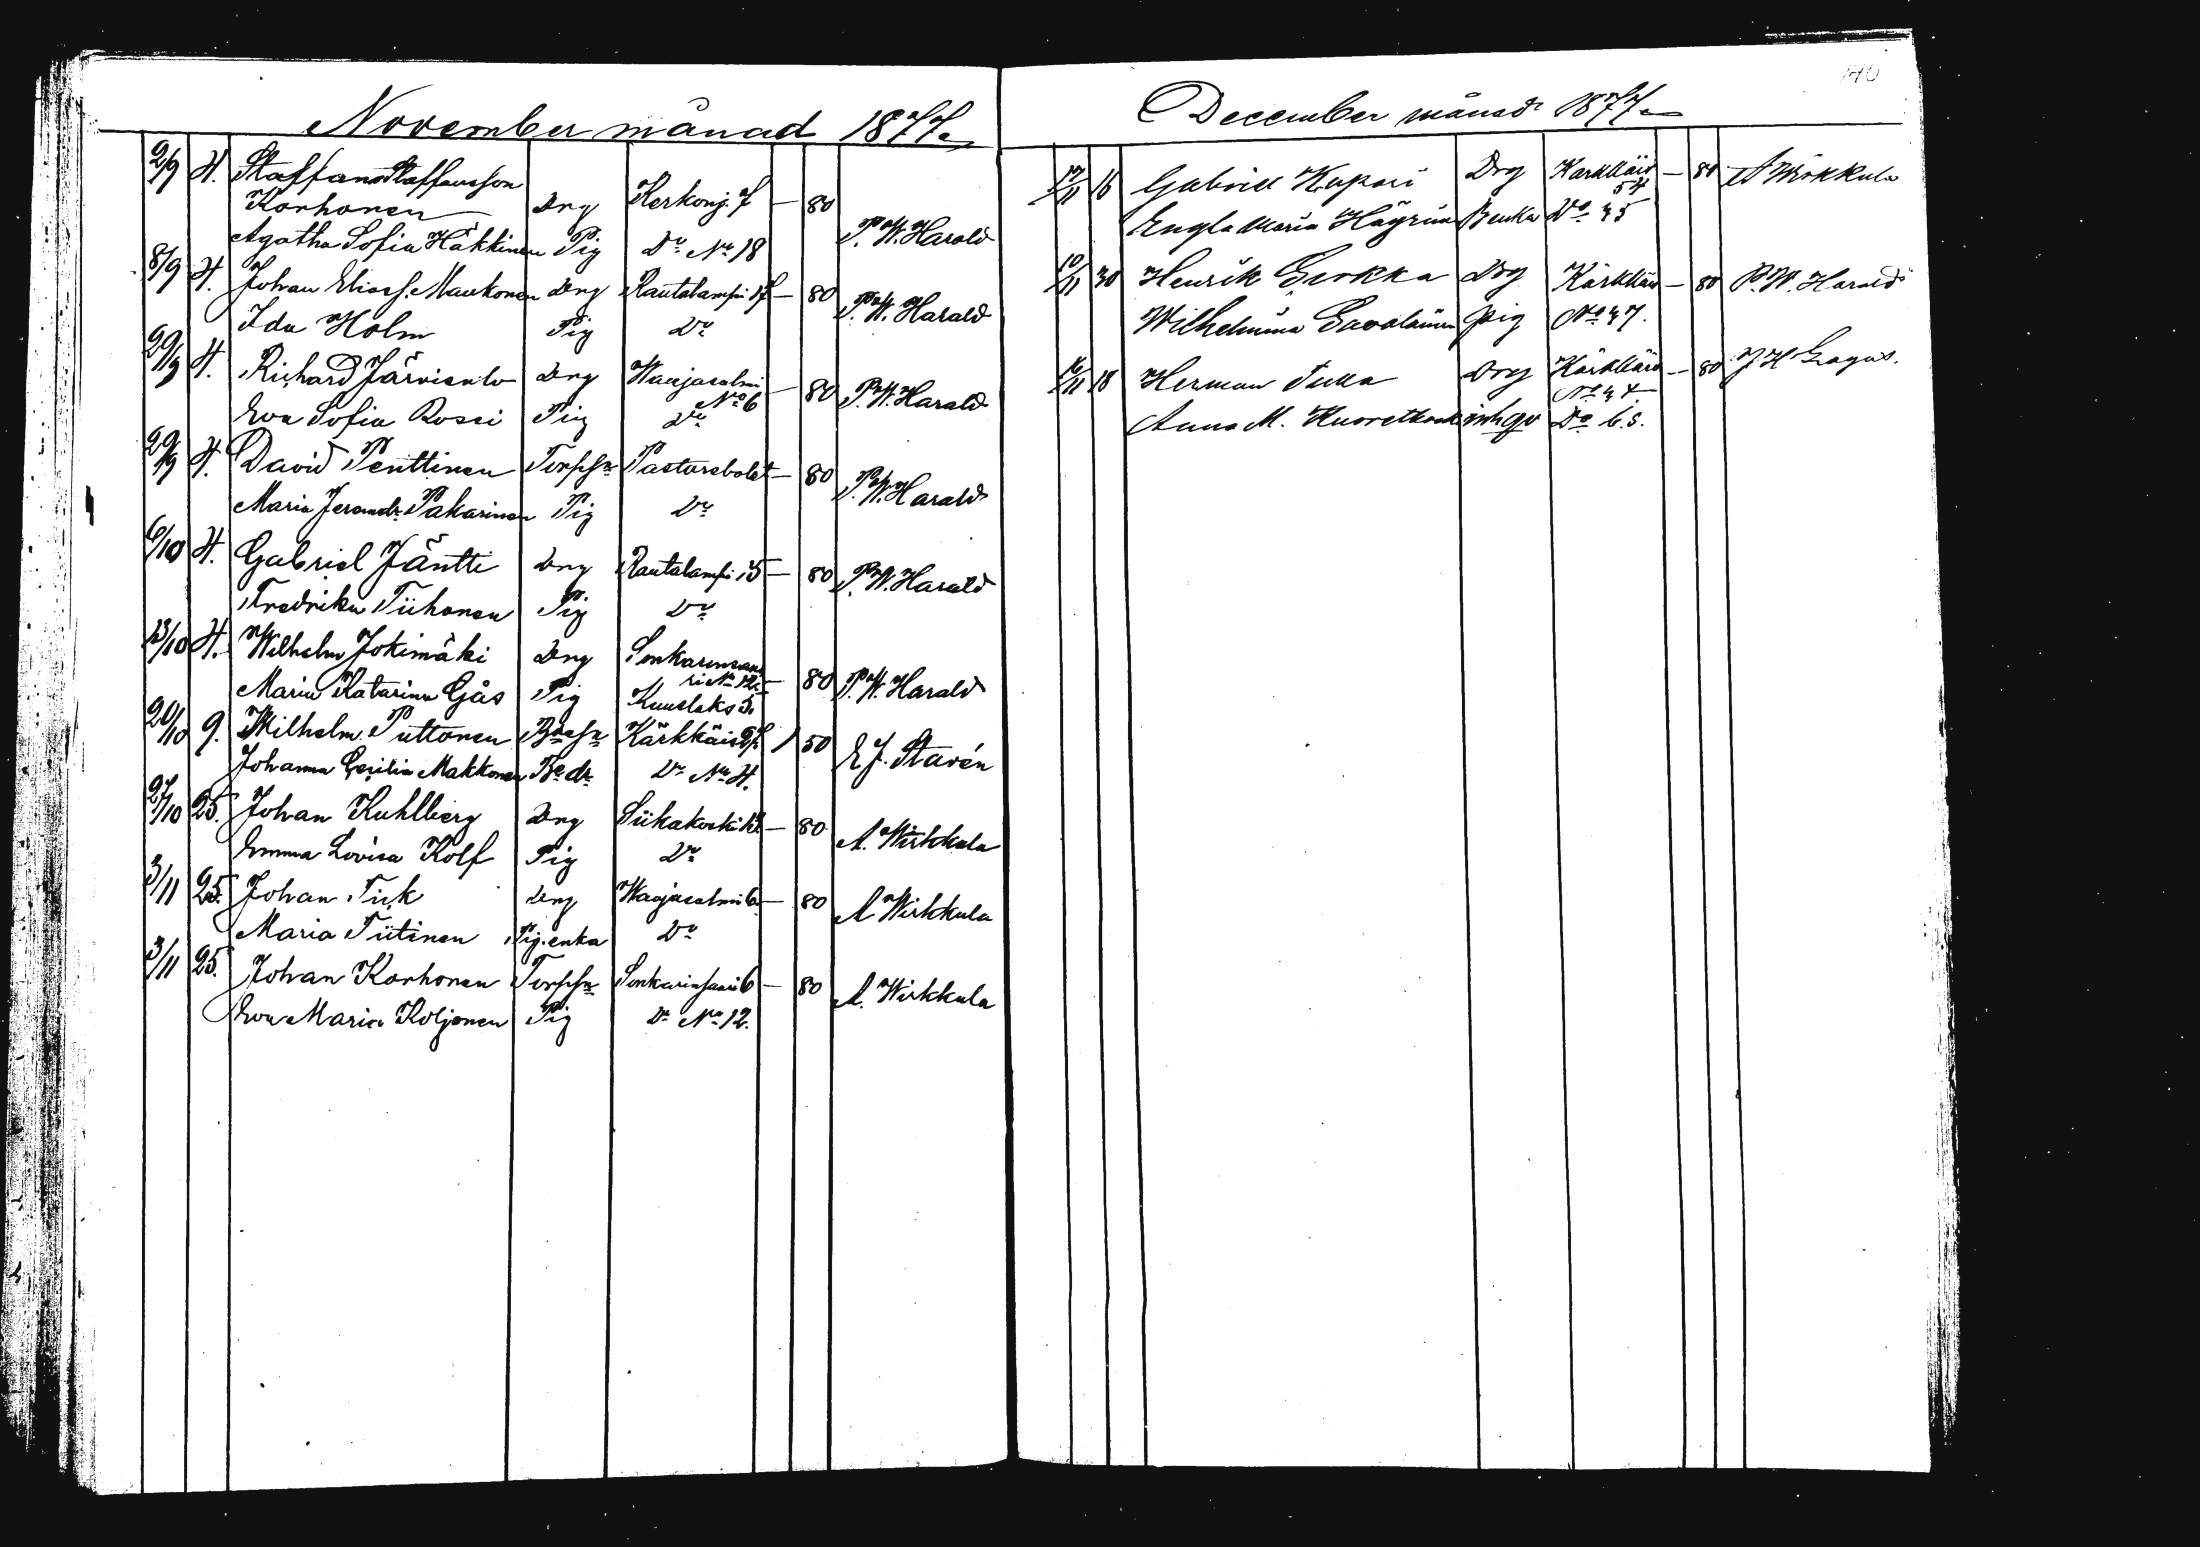 November månad 1877.
2/9 4. Staffan Staffansson
Korhonen Drg Kerkonj. 7 — 80 P. W. Harald
Agatha Sofia Häkkinen Pig Do No 18
8/9 4. Johan Eliass. Maukonen Drg Rautalampi 17 — 80 P. W. Harald
Ida Holm Pig Do
29/9 4. Richard Järvisalo Drg Waajasalmi
No 6 — 80 P. W. Harald
Eva Sofia Rossi Pig Do
29/9 4. David Penttinen Torpsn Pastorsbolet — 80 P. W. Harald
Maria Pakarinen Pig Do
6/10 4. Gabriel Jäntti Drg Rautalampi 15 — 80 P. W. Harald
Fredrika Tiihonen Pig Do
13/10 4. Wilhelm Jokimäki Drg Sonkarinsaa
ri No 12. — 80 P. W. Harald
Maria Katarina Gås Pig Kuuslaks 5.
20/10 9. Wilhelm Puttonen Bdesn Kärkkäis 1 50 E J. Stavén
Johanna Cecilia Makkonen Bedr Do No 4.
27/10 25. Johan Kuhlberg Drg Siikakoski — 80 A. Wirkkula
Emma Lovisa Kolf Pig Do
3/11 25. Johan Fick Drg Waajasalmi 6. — 80 A Wirkkula
Maria Tiitinen Pig. enka Do
3/11 25. Johan Korhonen Torpsn Sonkarinsaari 6 — 80 A. Wirkkula
Eva Maria Koljonen Pig Do No 12.
December månad 1877.
16 Gabriel Kupari Drg Karkkäis — 80 A Wirkkula
54
Engla Maria Häyrin Benka Do 35
10/11 30 Henrik Drg Kärkkäis — 80 P. W. Harald
Wilhelmina Savolainen pig No 37.
18 Herman Drg Kärkkäis — 80
No 34.
Anna M. inhqv Do 6.s.